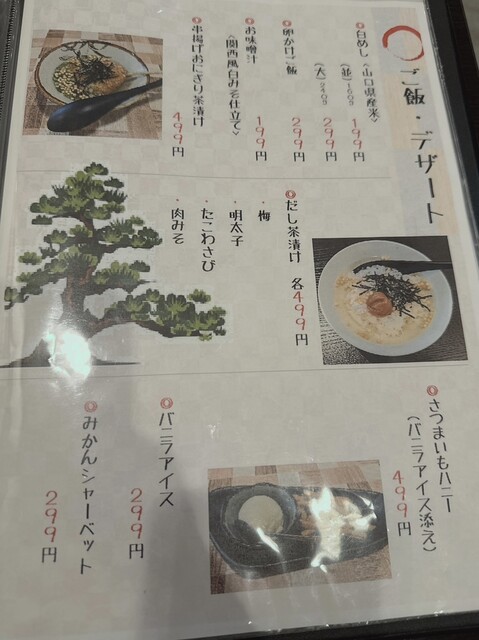 ご飯・デザート
白めし〈山口県産米〉
(並)160g 199円
(大)240g 299円
卵かけご飯 299円
お味噌汁
〈関西風白みそ仕立て〉 199円
串揚げおにぎり茶漬け 499円
だし茶漬け 各499円
・梅
・明太子
・たこわさび
・肉みそ
さつまいもハニー
(バニラアイス添え)
499円
バニラアイス 299円
みかんシャーベット 299円